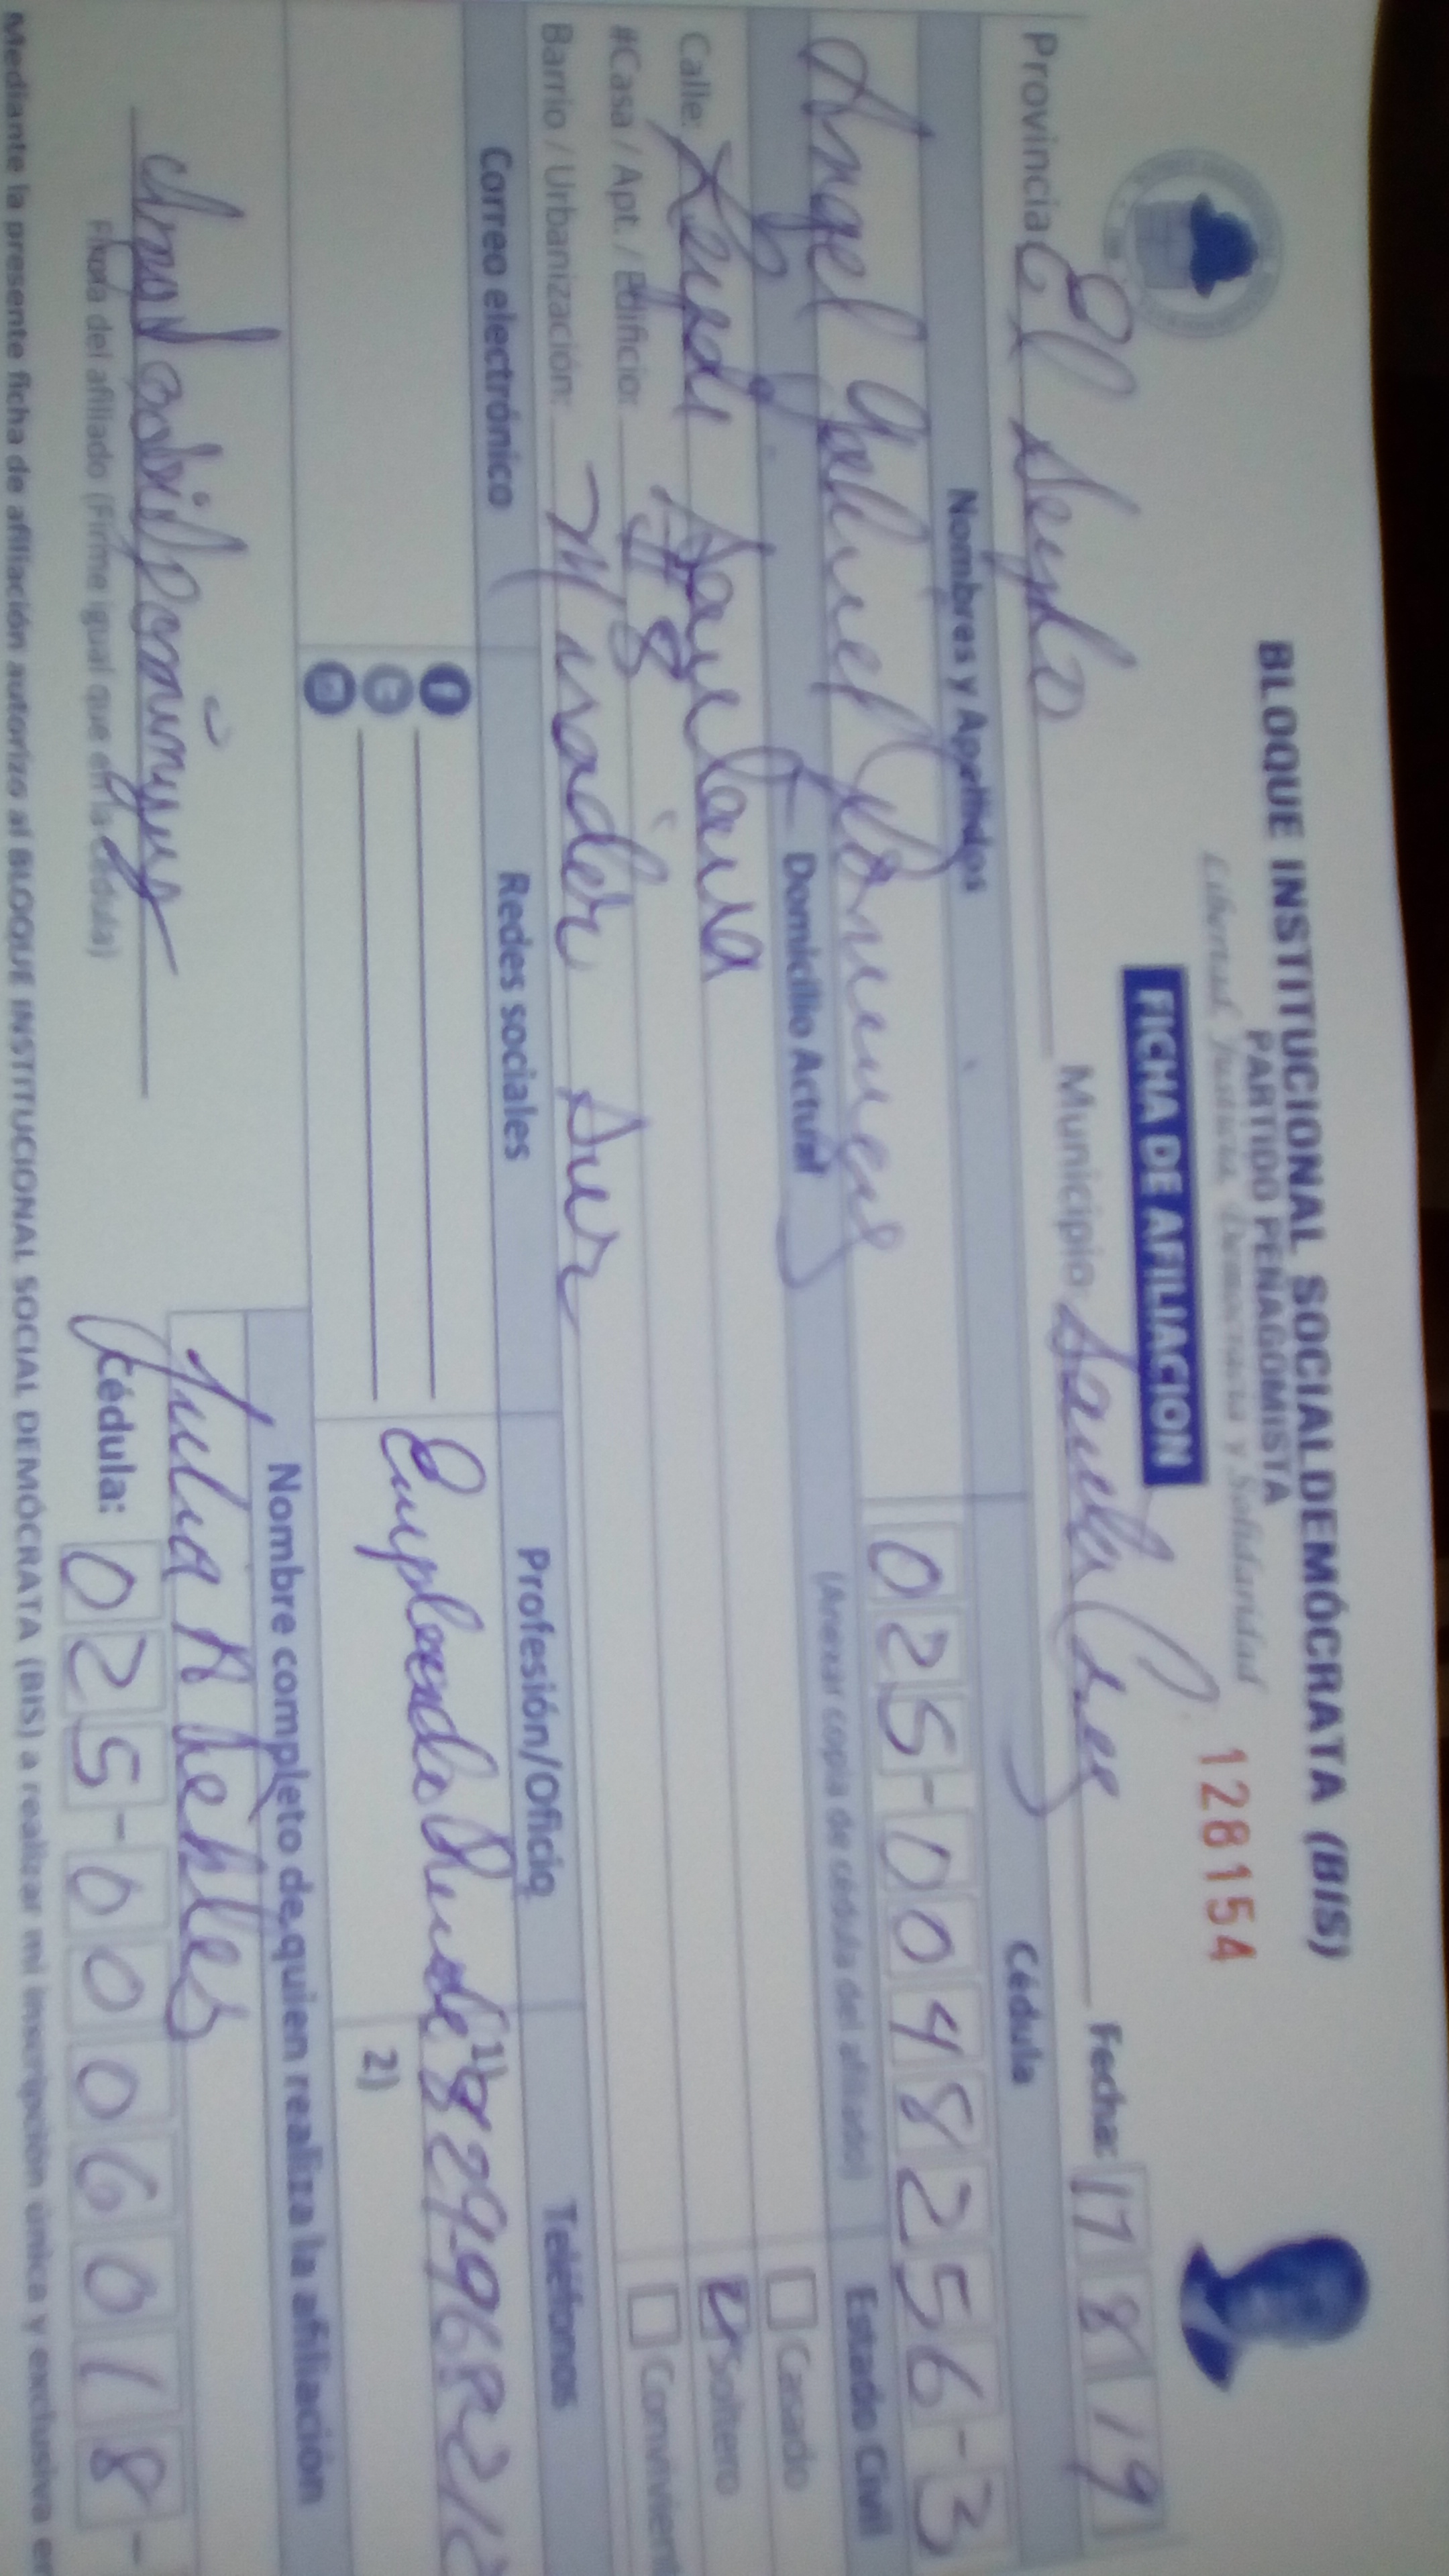 BLOQUE INSTITUCIONAL SOCIALDEMÓCRATA (BIS)
PARTIDO PEÑAGOMISTA
Libertad, Justicia, Democracia y Solidaridad
128154
FICHA DE AFILIACION
Provincia El Seybo Municipio Santa Cruz Fecha: 17 8 19
Nombres y Apellidos Cédula
Angel Gabriel 025-0048256-3
Domicilio Actural (Anexar copia de cédula del afiliado) Estado Civil
Calle: Casado
#Casa / Apt. / Edificio: #8 Soltero
Barrio / Urbanización: Sur Convivient
Correo electrónico Redes sociales Profesión/Oficio Teléfonos
1) 829-968-21
2)
Nombre completo de quien realiza la afiliación
Julia A
Firma del afiliado (Firme igual que en la cédula)
Cédula: 025-0006018-
Mediante la presente ficha de afiliación autorizo al BLOQUE INSTITUCIONAL SOCIAL DEMÓCRATA (BIS) a realizar mi inscripción única y exclusiva en